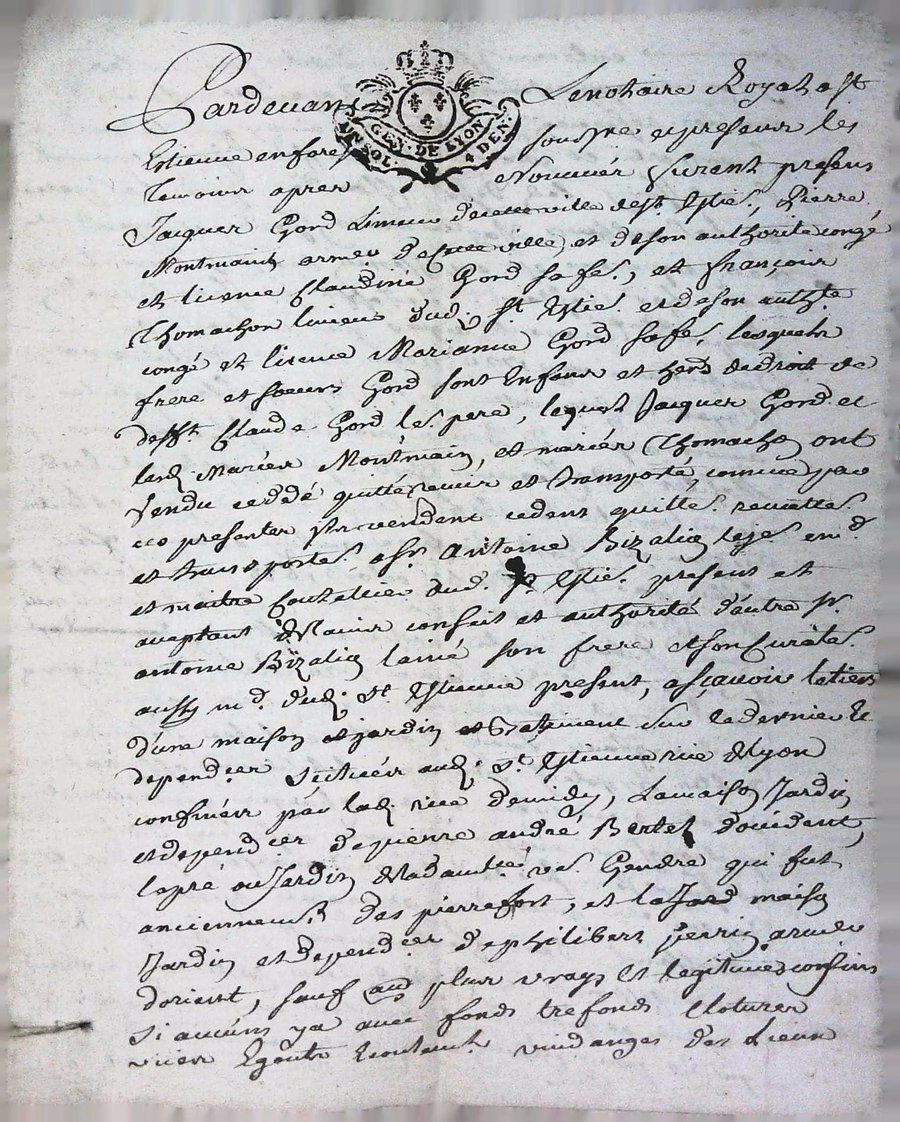 Pardevant Le notaire Royal a St
GEN. DE LYON
UN SOL. 4 DEN.
Estienne en fores soussigne et presens les
temoins apres Nommés furent presens
Jacques Gord Limeur de cette ville de St. Estie., Pierre
Montmain armeu. de cette ville, et de son authorité congé
et licence Claudine Gord sa fe., et françois
Thomachon limeur dud. St. Estie. et de son authte.
congé et licence Marianne Gord sa fe., lesquels
frere et soeurs Gord sont Enfans et herd. de droit de
defft. Claude Gord leur pere, lequel Jacques Gord et
lesd. Mariés Montmain, et mariés Thomachon ont
vendu ceddé quitté remis et transporté, comme par
ces presentes ils vendent cedent quitte. remette.
et transporte. a Sr. Antoine Bizalion le je. md.
et maitre Coutelier dud. St. Estie. present et
aceptant de l'avis conseil et authorité d'autre Sr.
antoine Bizalion lainé son frere et son Curate.
aussy md. dud. St. Estienne present, asçavoir le tiers
d'une maison et jardin et batiment sur le dernier
dependces. scitués aud. St. Estienne rue de Lyon
confinés par lad. rue de midy, La maison Jardin
et dependces. de pierre andré Bertet d'occident,
le pré ou Jardin de ve. Gendre qui fut
anciennemt. des pierrefort, et la maison
Jardin et dependces. de philibert perrin armeu.
dorient, sauf aus plus vrays et legitimes confins
si aucuns y a avec fonds trefonds Clotures
vües Egouts Ecoulemt. vuidanges des Lieux